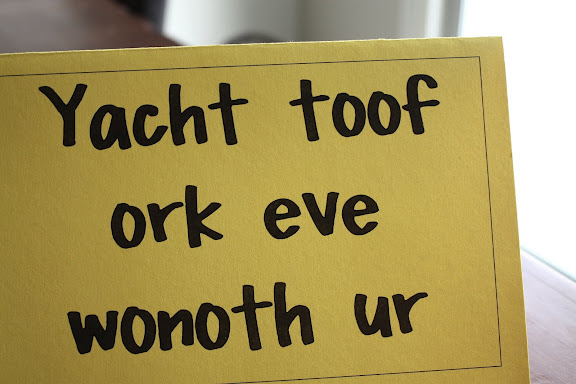 Yacht toof
ork eve
wonoth ur